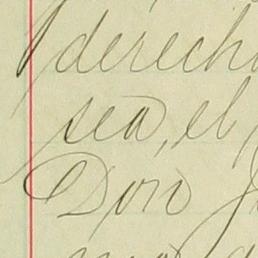 derech
sea, el
Don J